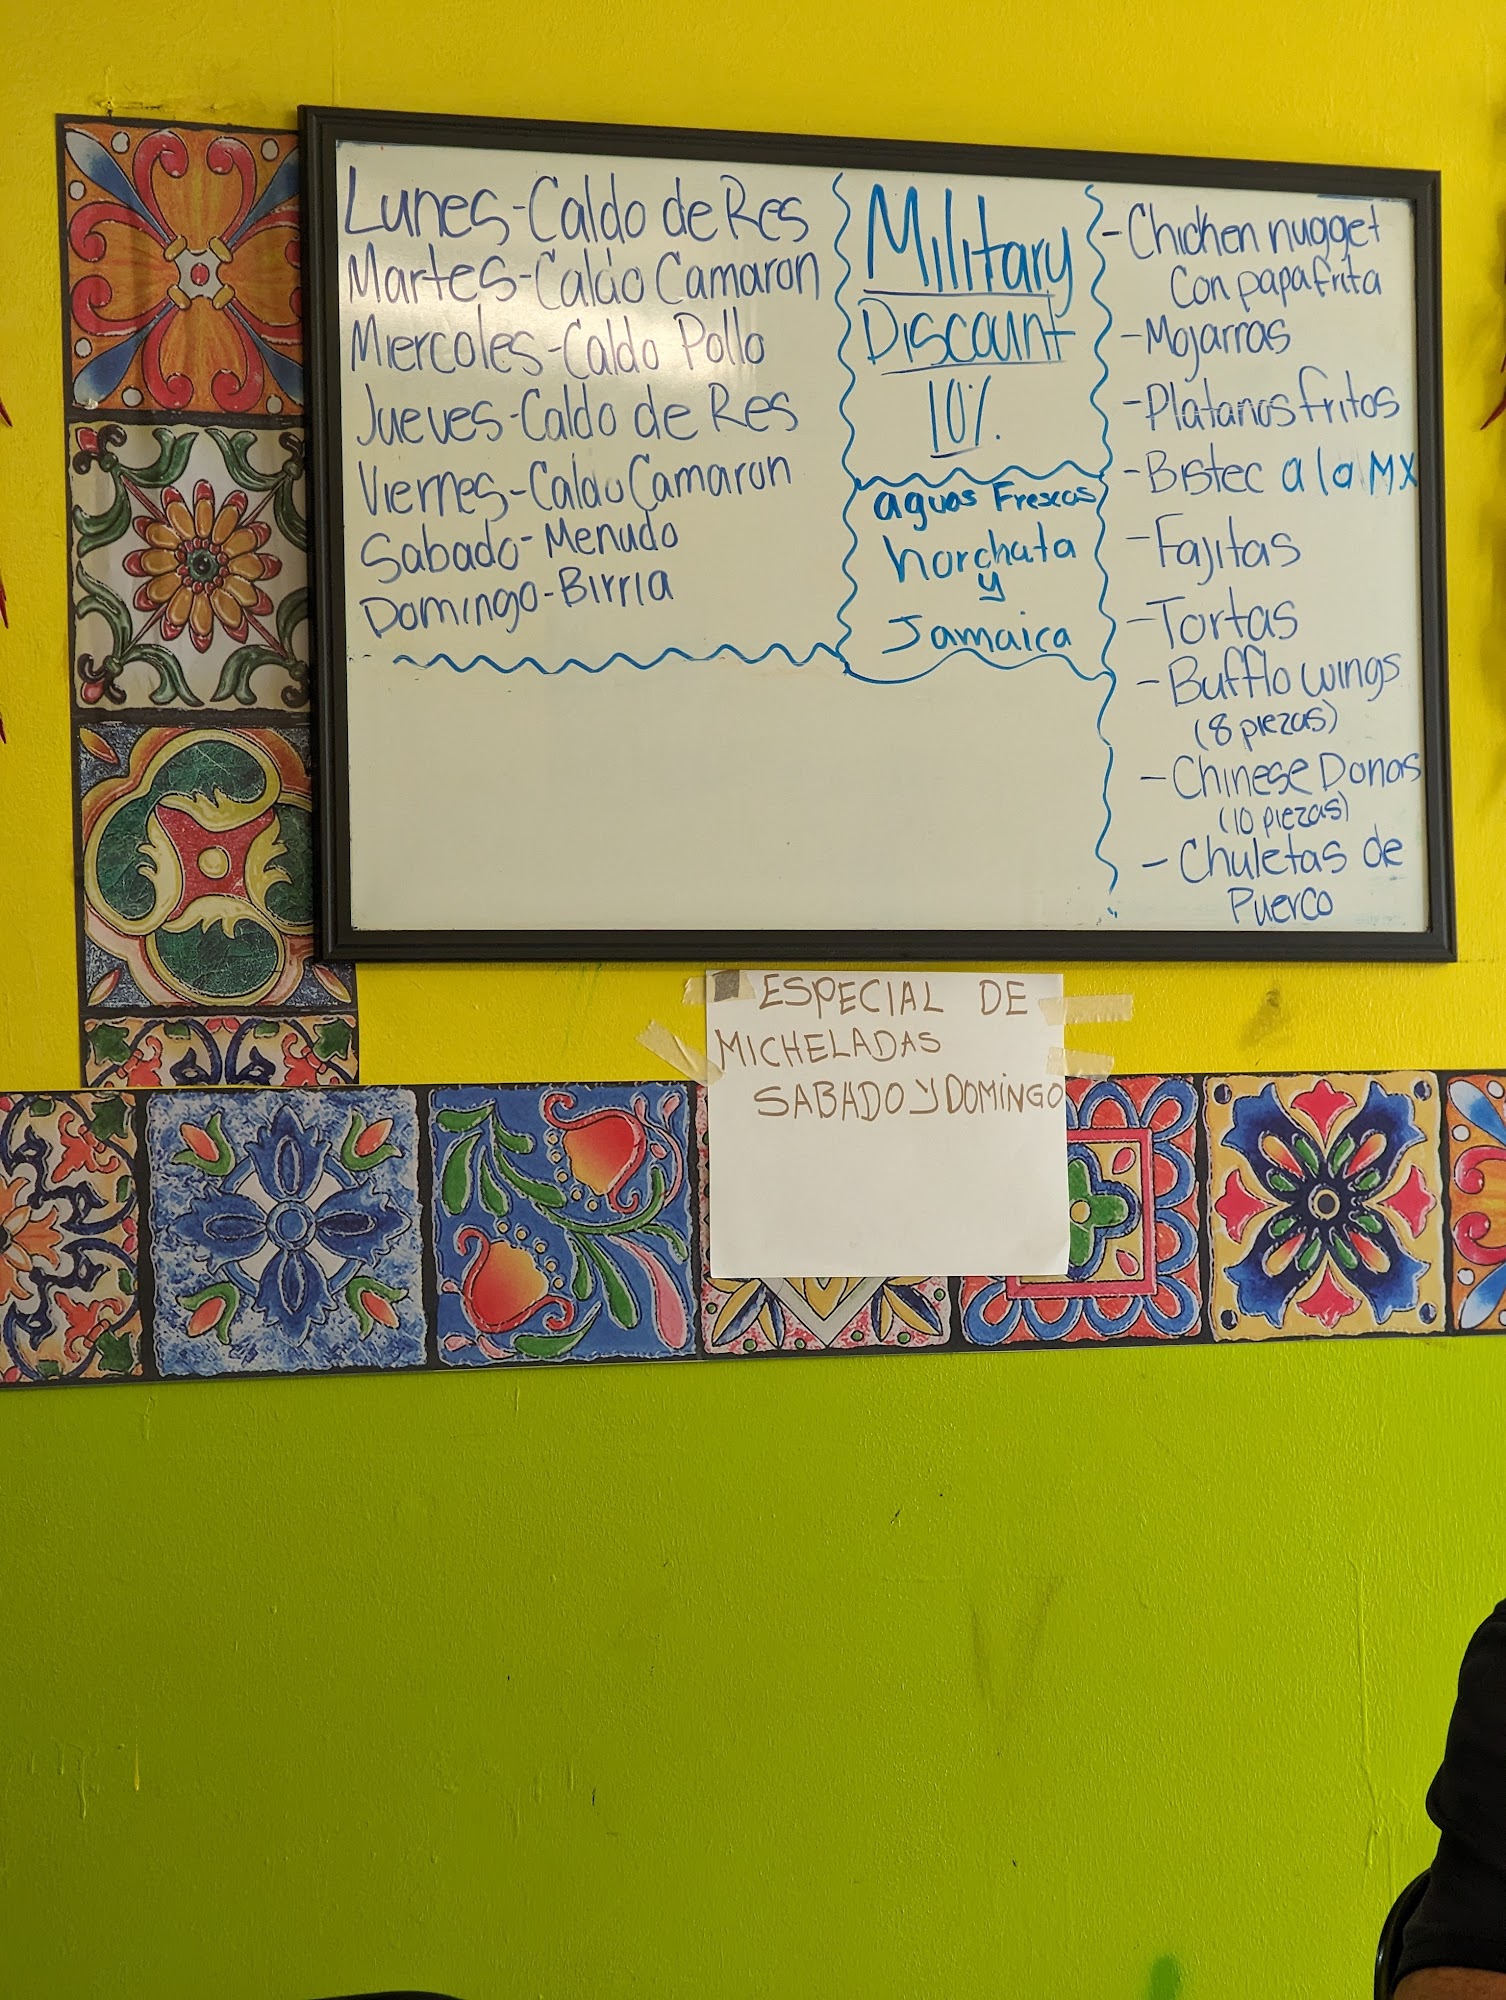 Lunes-Caldo de Res
Martes-Caldo Camaron
Miercoles-Caldo Pollo
Jueves-Caldo de Res
Viernes-Caldo Camaron
Sabado-Menudo
Domingo-Birria
Military
Discount
10%
aguas Frescas
horchata
y
Jamaica
-Chicken nugget
Con papa frita
-Mojarras
-Platanos fritos
-Bistec a la MX
-Fajitas
-Tortas
-Bufflo wings
(8 piezas)
-Chinese Donas
(10 piezas)
-Chuletas de
Puerco
ESPECIAL DE
MICHELADAS
SABADO Y DOMINGO